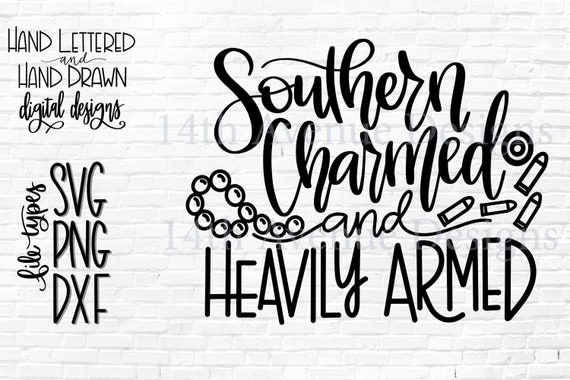 HAND LETTERED
and
HAND DRAWN
digital designs
file types
SVG
PNG
DXF
Southern
Charmed
and
HEAVILY ARMED
14th Avenue Designs
14th Avenue Designs